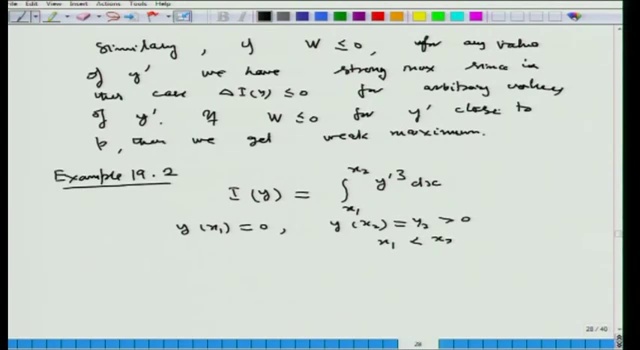 View Insert Actions Tools Help
Similary, if W ≤ 0, for any value
of y' we have strong max since in
this case ΔI(y) ≤ 0 for arbitrary values
of y'. If W ≤ 0 for y' close to
p, then we get weak maximum.
Example 19.2
I(y) = ∫_{x₁}^{x₂} y'³ dx
y(x₁) = 0, y(x₂) = y₂ > 0
x₁ < x₂
28 / 40
28